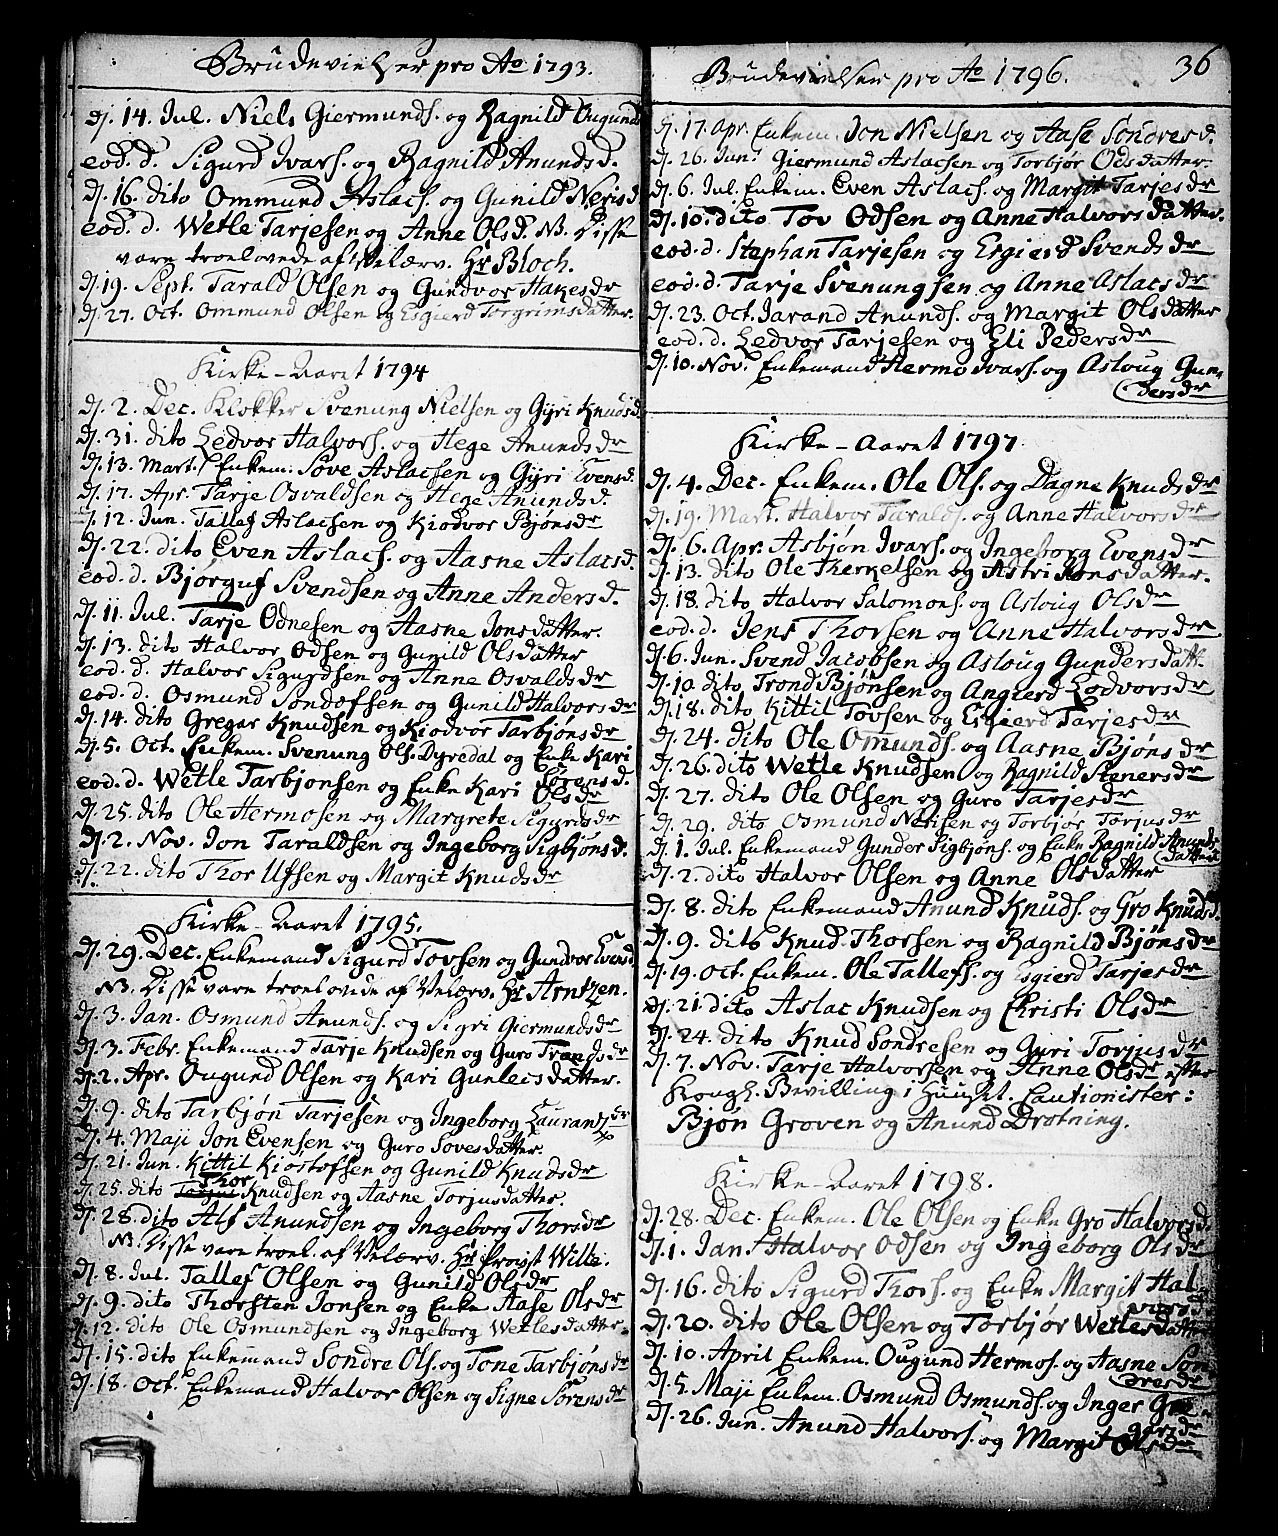 Brudevielser pro Ao 1793.
dj. 14. Jul. Niels Giermunds. og Ragnild Ougunds
eod. d. Sigurd Ivars. og Ragnild Anundsd.
dj. 16. dito Ommund Aslacs. og Gunild Nerisd
eod. d. Wetle Tarjesen og Anne Olsd. NB. Disse
vare troelovede af Velærv. Hr Bloch.
dj. 19. Sept. Tarald Olsen og Gundvor Hakesdr
dj. 27. Oct. Ommund Olsen og Esgierd Torgrimsdatter.
Kirke-Aaret 1794
dj. 2. Dec. Klokker Svenung Nielsen og Gyri Knudsd.
dj. 31. dito Ledvor Halvors. og Hege Anundsdr
dj. 13. Mart. Enkem. Sove Aslacsen og Gyri Evensd.
dj. 17. Apr. Tarje Osvaldsen og Hege Anundsd.
dj. 12. Jun. Tallef Aslacsen og Kiodvor Bjønsdr
dj. 22. dito Even Aslacs. og Aasne Aslacsd.
eod. d. Bjørguf Svendsen og Anne Andersd.
dj. 11. Jul. Tarje Odnesen og Aasne Jonsdatter.
dj. 13. dito Halvor Odsen og Gunild Olsdatter
eod. d. Halvor Sigurdsen og Anne Osvaldsdr
eod. d. Osmund Sondofsen og Gunild Halvorsdr
dj. 14. dito Gregar Knudsen og Kiodvor Tarbjønsdr
dj. 5. Oct. Enkem. Svenung Ols. Dyredal og Enke Kari
Sørensd.
eod. d. Wetle Tarbjonsen og Enke Kari Olsdr
dj. 25. dito Ole Hermosen og Margrete Sigurdsdr
dj. 2. Nov. Jon Taraldsen og Ingeborg Sigbjønsd.
dj. 22. dito Thor Ufsen og Margit Knudsdr
Kirke-Aaret 1795.
dj. 29. Dec. Enkemand Sigurd Tovsen og Gundvor Evensd
NB. Disse vare troelovede af Velærv. Hr Arntzen.
dj. 3. Jan. Osmund Anunds. og Sigri Giermundsdr
dj. 3. Febr. Enkemand Tarje Knudsen og Guro Trondsdr
dj. 2. Apr. Ougund Olsen og Kari Gunleisdatter.
dj. 9. dito Tarbjøn Tarjesen og Ingeborg Laurandsdr
dj. 4. Maji Jon Evensen og Guro Sovesdatter.
dj. 21. Jun. Kittil Kiostofsen og Gunild Knudsdr
Thor
dj. 25. dito Torjus Knudsen og Aasne Torjusdatter.
dj. 28. dito Alf Anundsen og Ingeborg Thorsdr
NB. Disse vare troel. af Velærv. Hr Provst Wille.
dj. 8. Jul. Tallef Olsen og Gunild Olsdr
dj. 9. dito Thorsten Jonsen og Enke Aase Olsdr
dj. 12. dito Ole Osmundsen og Ingeborg Wetlesdatter.
dj. 15. dito Enkemand Sondre Ols. og Tone Tarbjønsdr
dj. 18. Oct. Enkemand Halvor Olsen og Signe Sørensdr
36
Brudevielser pro Ao 1796.
dj. 17. Apr. Enkem. Jon Nielsen og Aase Sondresd.
dj. 26. Jun. Giermund Aslacsen og Torbjør Odsdatter.
dj. 6. Jul. Enkem. Even Aslacs. og Margit Tarjesdr
dj. 10. dito Tov Odsen og Anne Halvorsdatter.
eod. d. Stephan Tarjesen og Ergierd Svendsdr
eod. d. Tarje Svenungsen og Anne Aslacsdr
dj. 23. Oct. Jarand Anunds. og Margit Olsdatter
eod. d. Ledvor Tarjesen og Eli Pedersdr
dj. 10. Nov. Enkemand Hermo Ivars. og Asloug Gun-
dersdr
Kirke-Aaret 1797.
dj. 4. Dec. Enkem. Ole Ols. og Dagne Knudsdr
dj. 19. Mart. Halvor Taralds. og Anne Halvorsdr
dj. 6. Apr. Asbjøn Ivars. og Ingeborg Evensdr
dj. 13. dito Ole Therkelsen og Astri Jonsdatter.
dj. 18. dito Halvor Salomons. og Asloug Olsdr
eod. d. Jens Thorsen og Anne Halvorsdr
dj. 6. Jun. Svend Jacobsen og Asloug Gundersdatt.
dj. 10. dito Trond Bjønsen og Angierd Lodvorsdr
dj. 18. dito Kittil Tovsen og Esgierd Tarjesdr
dj. 24. dito Ole Omunds. og Aasne Bjønsdr
dj. 26. dito Wetle Knudsen og Ragnild Stenersdr
dj. 27. dito Ole Olsen og Guro Tarjesdr
dj. 29. dito Osmund Nerisen og Torbjør Torjusdr
dj. 1. Jul. Enkemand Gundor Sigbjøns. og Enke Ragnild Anunds-
datter
dj. 2. dito Halvor Olsen og Anne Olsdatter
dj. 8. dito Enkemand Anund Knuds. og Gro Knudsd.
dj. 9. dito Knud Thorsen og Ragnild Bjønsdr
dj. 19. Oct. Enkem. Ole Tallefs. og Esgierd Tarjesdr
dj. 21. dito Aslac Knudsen og Christi Olsdr
dj. 24. dito Knud Sondresen og Guri Torjusdr
dj. 7. Nov. Tarje Halvorsen og Anne Olsdr efter
Kongl. Bevilling i Huuset. Cautionister:
Bjøn Groven og Anund Drotning.
Kirke-Aaret 1798.
dj. 28. Dec. Enkem. Ole Olsen og Enke Gro Halvorsd.
dj. 1. Jan. Halvor Odsen og Ingeborg Olsdr
dj. 16. dito Sigurd Thors. og Enke Margit Hal-
vorsdr
dj. 20. dito Ole Olsen og Torbjør Wetlesdatter
dj. 10. April Enkem. Ougund Hermos. og Aasne Son-
dresdr
dj. 5. Maji Enkem. Osmund Osmunds. og Inger Gre-
garsdr
dj. 26. Jun. Anund Halvors. og Margit Olsdr